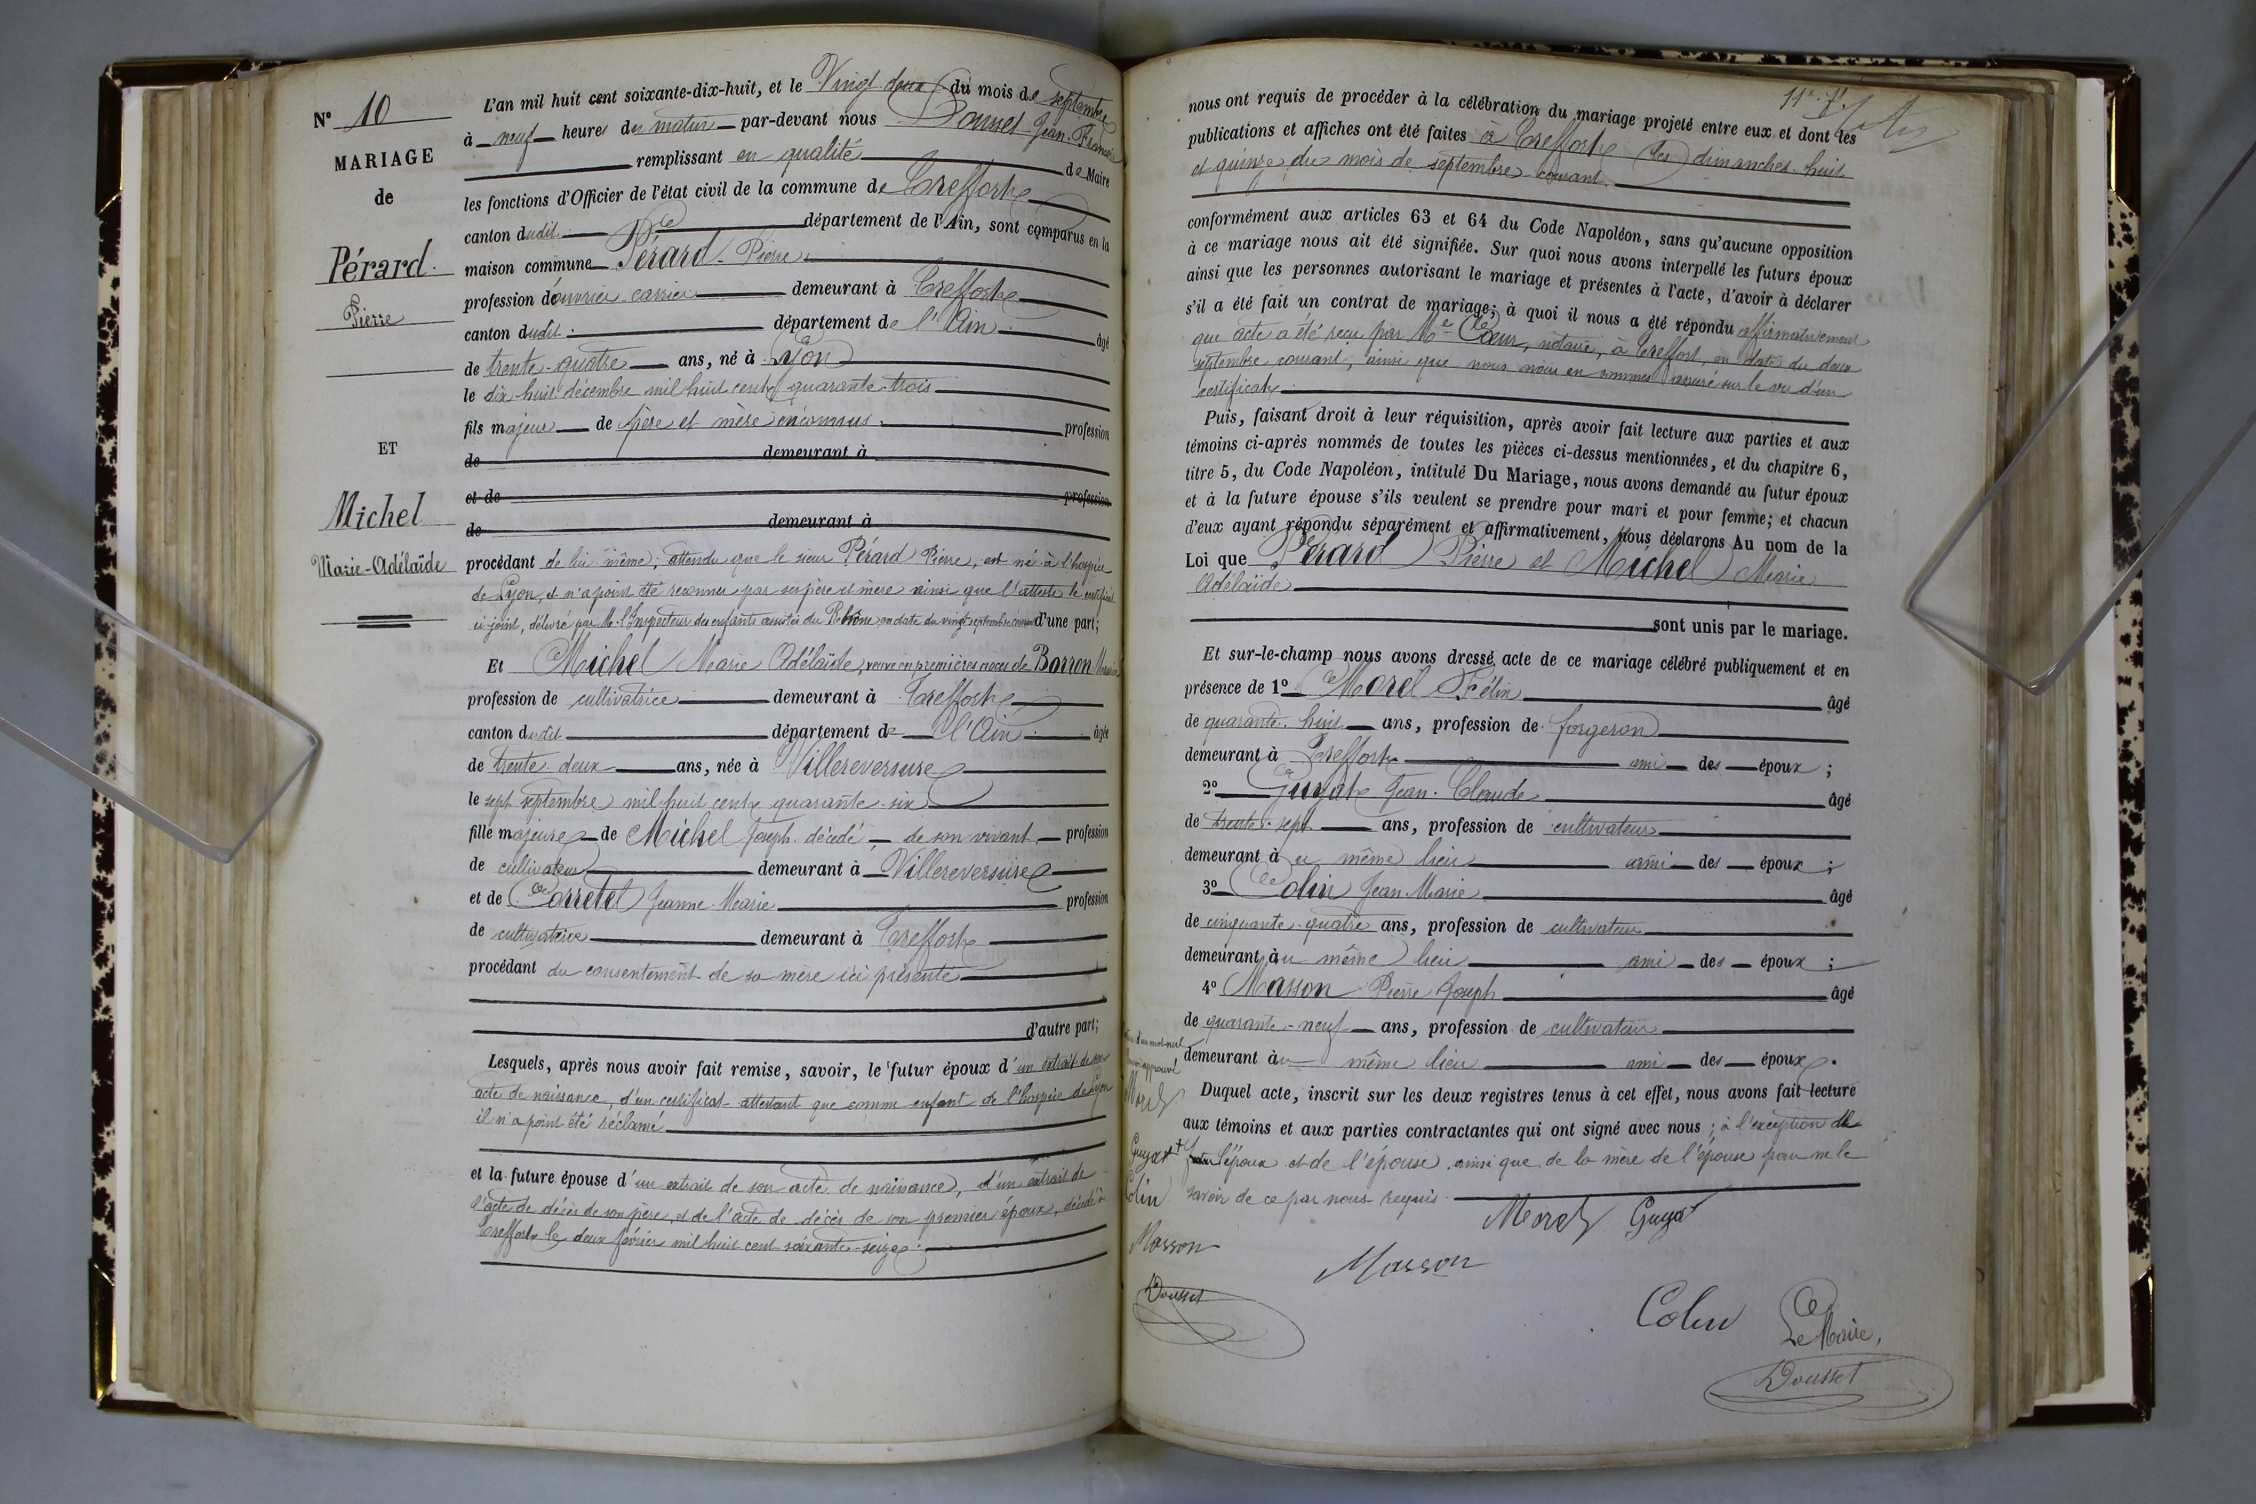 N° 10
MARIAGE
de
Pérard
Pierre
ET
Michel
Marie-Adélaïde
L'an mil huit cent soixante-dix-huit, et le Vingt deux du mois de septembre
à neuf heures du matin par-devant nous Dousset Jean-François
remplissant en qualité de Maire
les fonctions d'Officier de l'état civil de la commune de Treffort
canton dudit département de l'Ain, sont comparus en la
maison commune Pérard Pierre
profession d'ouvrier carrier demeurant à Treffort
canton dudit département de l'Ain âgé
de trente-quatre ans, né à Lyon
le dix-huit décembre mil huit cent quarante-trois
fils majeur de père et mère inconnus profession
de demeurant à
et de profession
de demeurant à
procédant de lui même, attendu que le sieur Pérard Pierre, est né à l'hospice
de Lyon, et n'a point été reconnu par ses père et mère ainsi que l'atteste le certificat
ci-joint, délivré par Mr l'Inspecteur des enfants assistés du Rhône en date du vingt septembre courant d'une part;
Et Michel Marie Adélaïde, veuve en premières noces de Barron
profession de cultivatrice demeurant à Treffort
canton dudit département de l'Ain âgée
de trente deux ans, née à Villereversure
le sept septembre mil huit cent quarante-six
fille majeure de Michel Joseph décédé de son vivant profession
de cultivateur demeurant à Villereversure
et de Corretel Jeanne Marie profession
de cultivatrice demeurant à Treffort
procédant du consentement de sa mère ici présente
d'autre part;
Lesquels, après nous avoir fait remise, savoir, le futur époux d'un extrait de son
acte de naissance, d'un certificat attestant que comme enfant de l'hospice de Lyon
il n'a point été réclamé
et la future épouse d'un extrait de son acte de naissance, d'un extrait de
l'acte de décès de son père, et de l'acte de décès de son premier époux, décédé à
Treffort le deux février mil huit cent soixante-seize.
nous ont requis de procéder à la célébration du mariage projeté entre eux et dont les
publications et affiches ont été faites à Treffort les dimanches huit
et quinze du mois de septembre courant
conformément aux articles 63 et 64 du Code Napoléon, sans qu'aucune opposition
à ce mariage nous ait été signifiée. Sur quoi nous avons interpellé les futurs époux
ainsi que les personnes autorisant le mariage et présentes à l'acte, d'avoir à déclarer
s'il a été fait un contrat de mariage; à quoi il nous a été répondu affirmativement
que acte a été reçu par Me Cœur, notaire, à Treffort, en date du deux
septembre courant, ainsi que nous nous en sommes assuré sur le vu d'un
certificat
Puis, faisant droit à leur réquisition, après avoir fait lecture aux parties et aux
témoins ci-après nommés de toutes les pièces ci-dessus mentionnées, et du chapitre 6,
titre 5, du Code Napoléon, intitulé Du Mariage, nous avons demandé au futur époux
et à la future épouse s'ils veulent se prendre pour mari et pour femme; et chacun
d'eux ayant répondu séparément et affirmativement, nous déclarons Au nom de la
Loi que Pérard Pierre et Michel Marie
Adélaïde
sont unis par le mariage.
Et sur-le-champ nous avons dressé acte de ce mariage célébré publiquement et en
présence de 1° Morel Félix âgé
de quarante-huit ans, profession de forgeron
demeurant à Treffort ami des époux;
2° Guyat Jean-Claude âgé
de trente-sept ans, profession de cultivateur
demeurant au même lieu ami des époux;
3° Colin Jean-Marie âgé
de cinquante-quatre ans, profession de cultivateur
demeurant au même lieu ami des époux;
4° Masson Pierre Joseph âgé
de quarante-neuf ans, profession de cultivateur
demeurant au même lieu ami des époux.
Duquel acte, inscrit sur les deux registres tenus à cet effet, nous avons fait lecture
aux témoins et aux parties contractantes qui ont signé avec nous; à l'exception de
l'époux et de l'épouse ainsi que de la mère de l'épouse pour ne le
savoir de ce par nous requis
Morel Guyat
Masson
Colin Le Maire,
Dousset
mot nul
approuvé
Morel
Guyat
Colin
Masson
Dousset